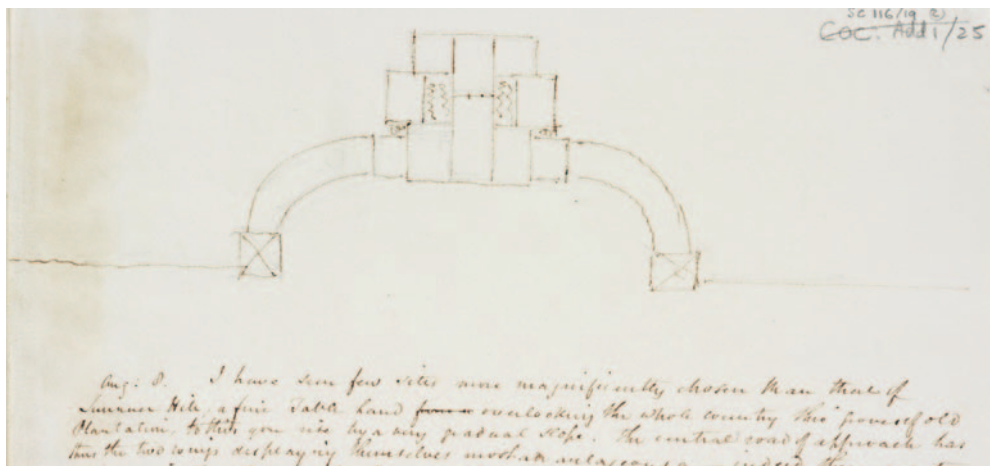 SC 116/19 2)
COC. Add 1/25
Aug: 8. I have seen few sites more magnificently chosen than that of
Summer Hill, a fine Table Land from overlooking the whole country thro' groves of old
Plantation, to this you rise by a very gradual slope. The central road of approach has
thus the two wings displaying themselves most indeed the